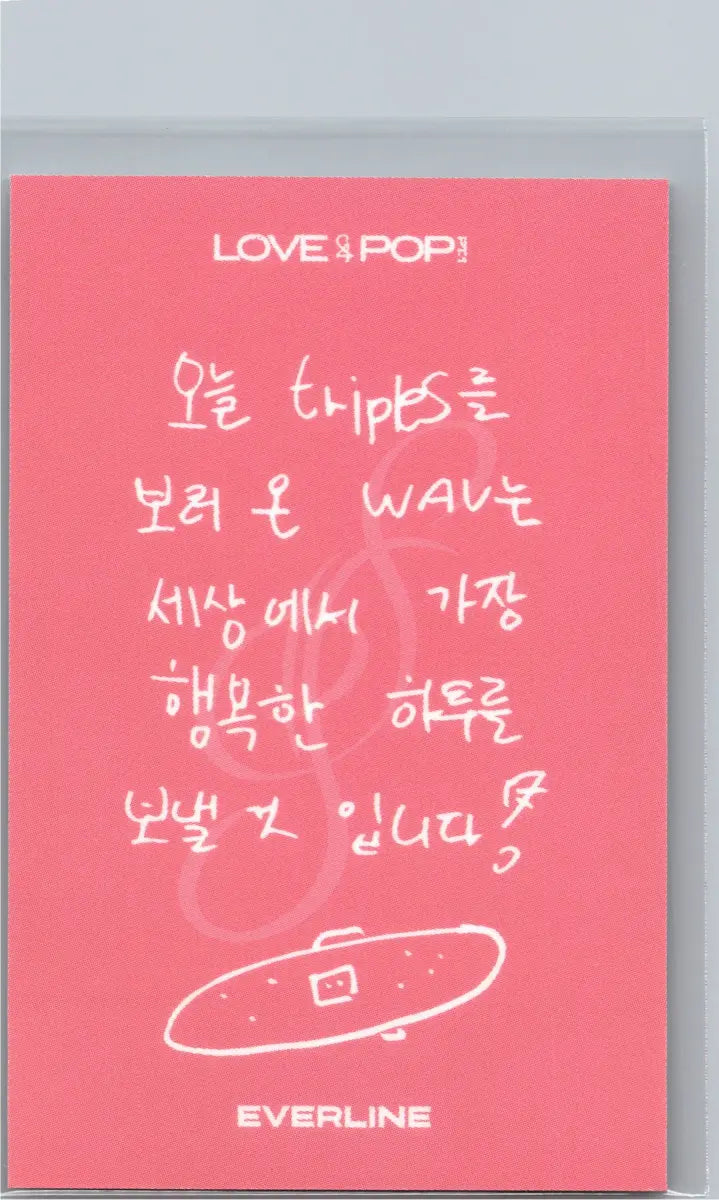 LOVE & POP
오늘 tripleS를
보러 온 WAV는
세상에서 가장
행복한 하루를
보낼 것 입니다
EVERLINE